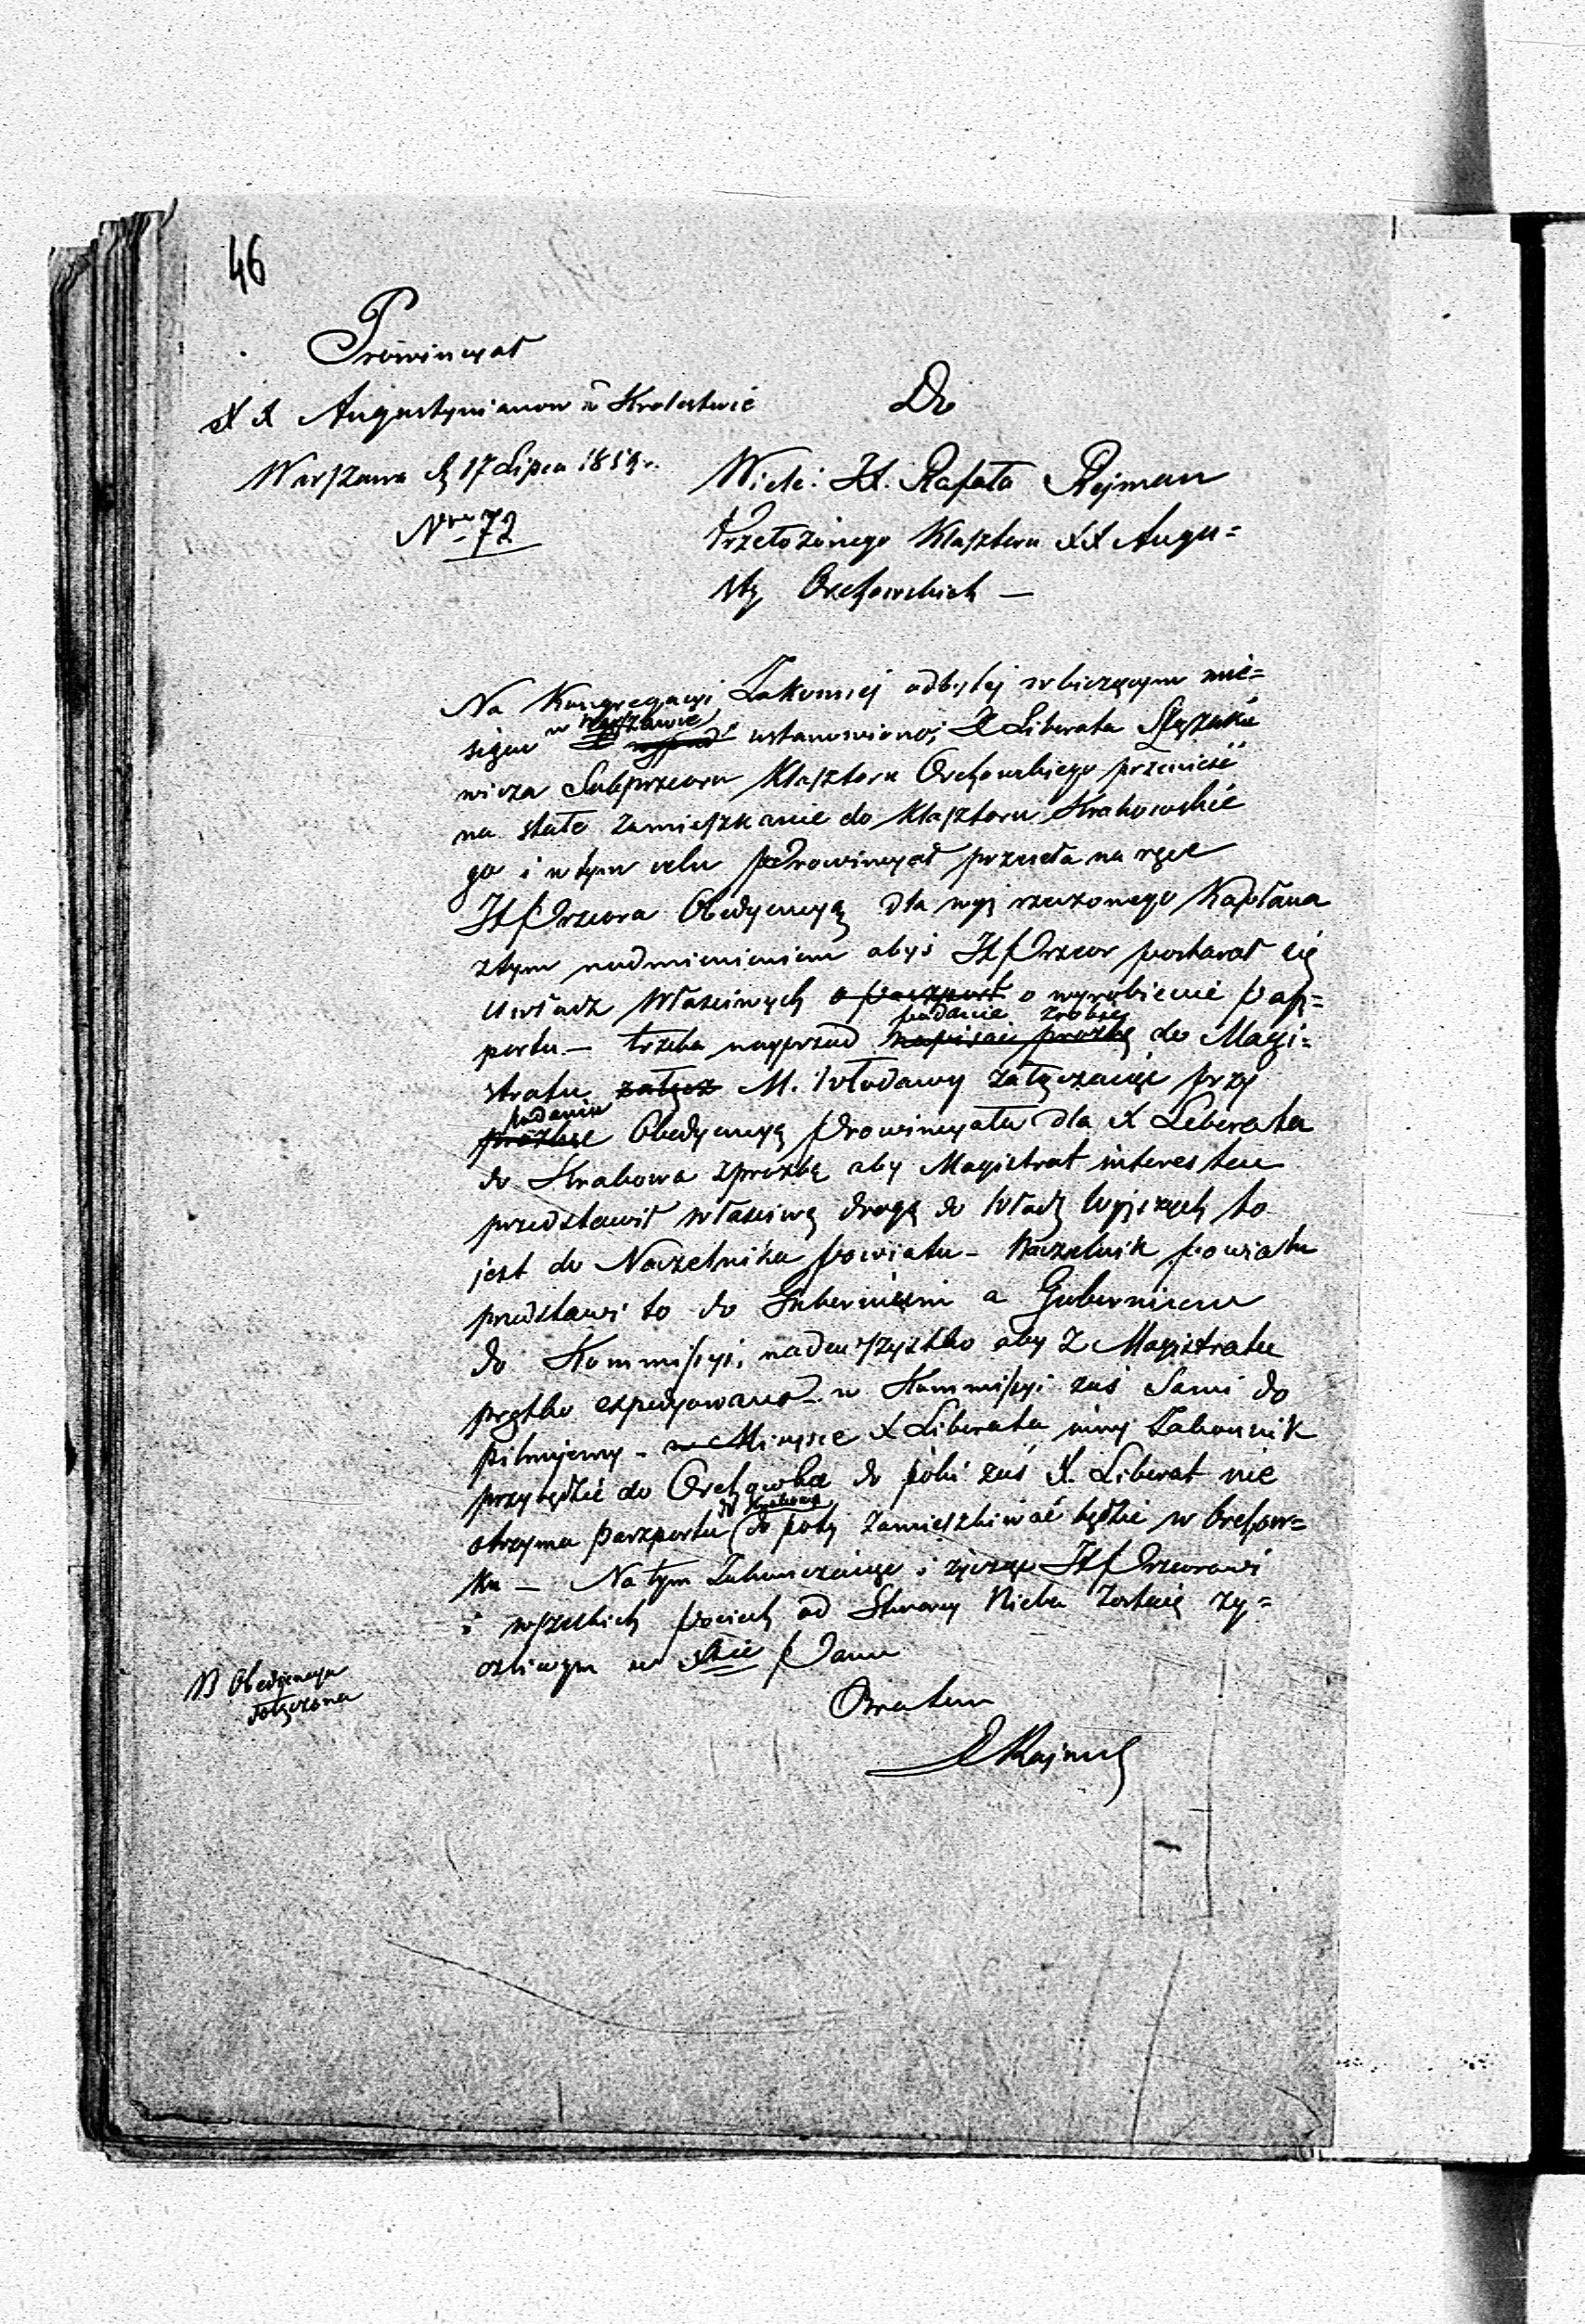 46
Prowincyał
XX Augustynianow w Krolestwie
Warszawa d. 17 Lipca 1859 r.
Nro 72
Do
Wiele: JX. Rafała Rejman
Przełożonego Klasztoru XX Augu=
sty Orchowskich —
Na Kongregacyi Zakonnej odbytej w bieżącym mie=
siącu w Warszawie ustanowiono; X Liberata
wicza Subprzeora Klasztoru Orchowskiego przenieść
na stałe zamieszkanie do Klasztoru Krakowskie
go i w tym celu Prowincyał przeseła na ręce
JX Przeora Obedyencyą dla wyj rzeczonego Kapłana
z tym nadmienieniem abyś JX Przeor postarał się
u władz Właściwych o paszport o wyrobienie pasz=
portu — trzeba najprzod napisać prozbę podanie zrobić do Magi=
stratu załącz M. Włodawy załączając przy
prozbie podaniu Obedyencyą Prowincyała dla X Liberata
do Krakowa z prozbą aby Magistrat interes ten
przedstawił właściwą drogą do Władz Wyższych to
jest do Naczelnika powiatu — Naczelnik powiatu
przedstawi to do Gubernium a Gubernium
do Kommissyi, nadewszystko aby z Magistratu
prętko expedyowano — w Kommissyi zaś Sami do
pilnujemy — w Miejsce X Liberata inny Zakonnik
przybędzie do Orchowka do póki zaś X. Liberat nie
otrzyma paszportu do Krakowa do poty zamieszkiwać będzie w Orchow=
ku — Na tym Zakonczając i życząc JX Przeorowi
i wszelkich pociech od Stworcy Nieba Zostaję ży=
czliwym w Panu
Bratem
X Rajmund
NB Obedyencya
dołączona